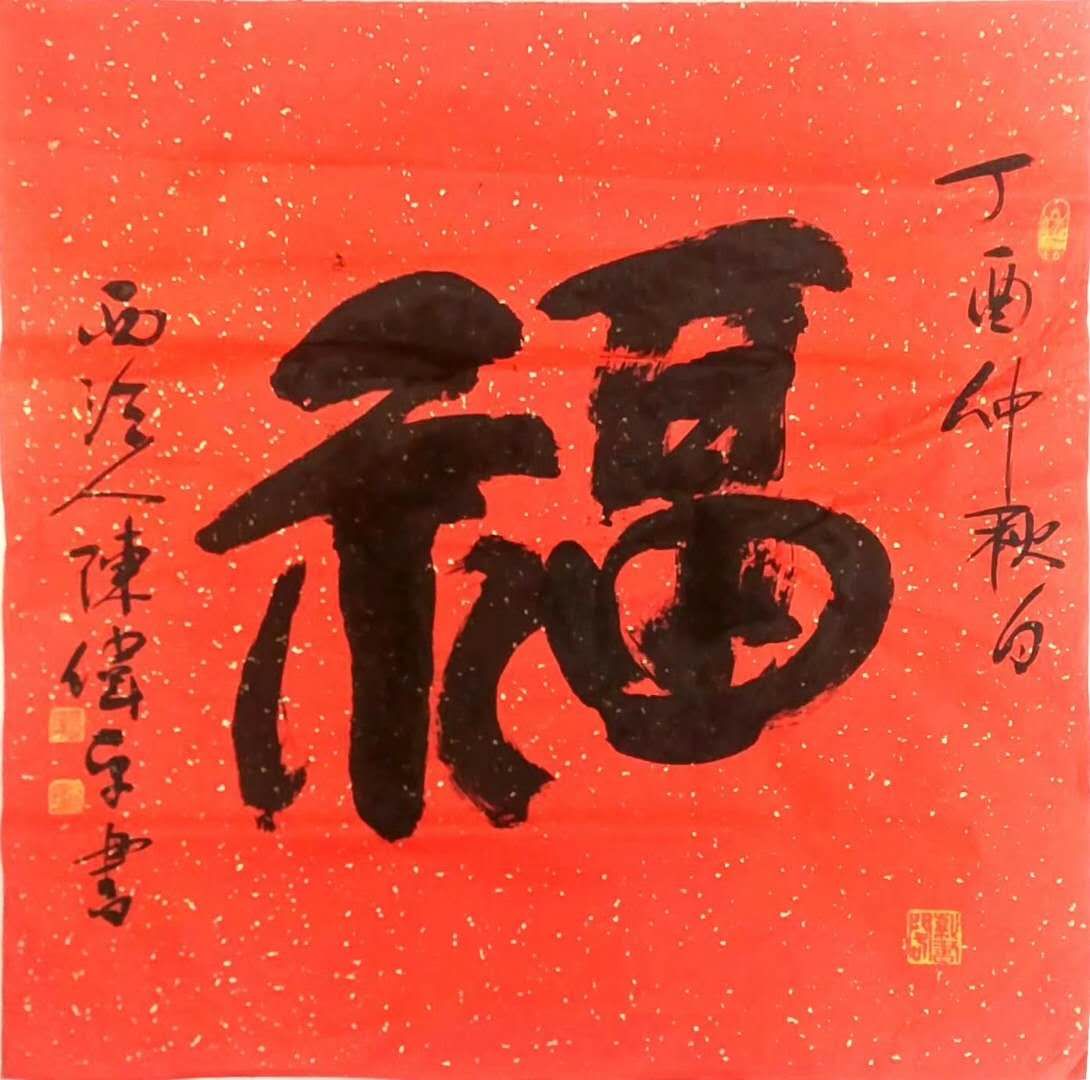 丁酉仲秋月
福
西泠人陳偉平書